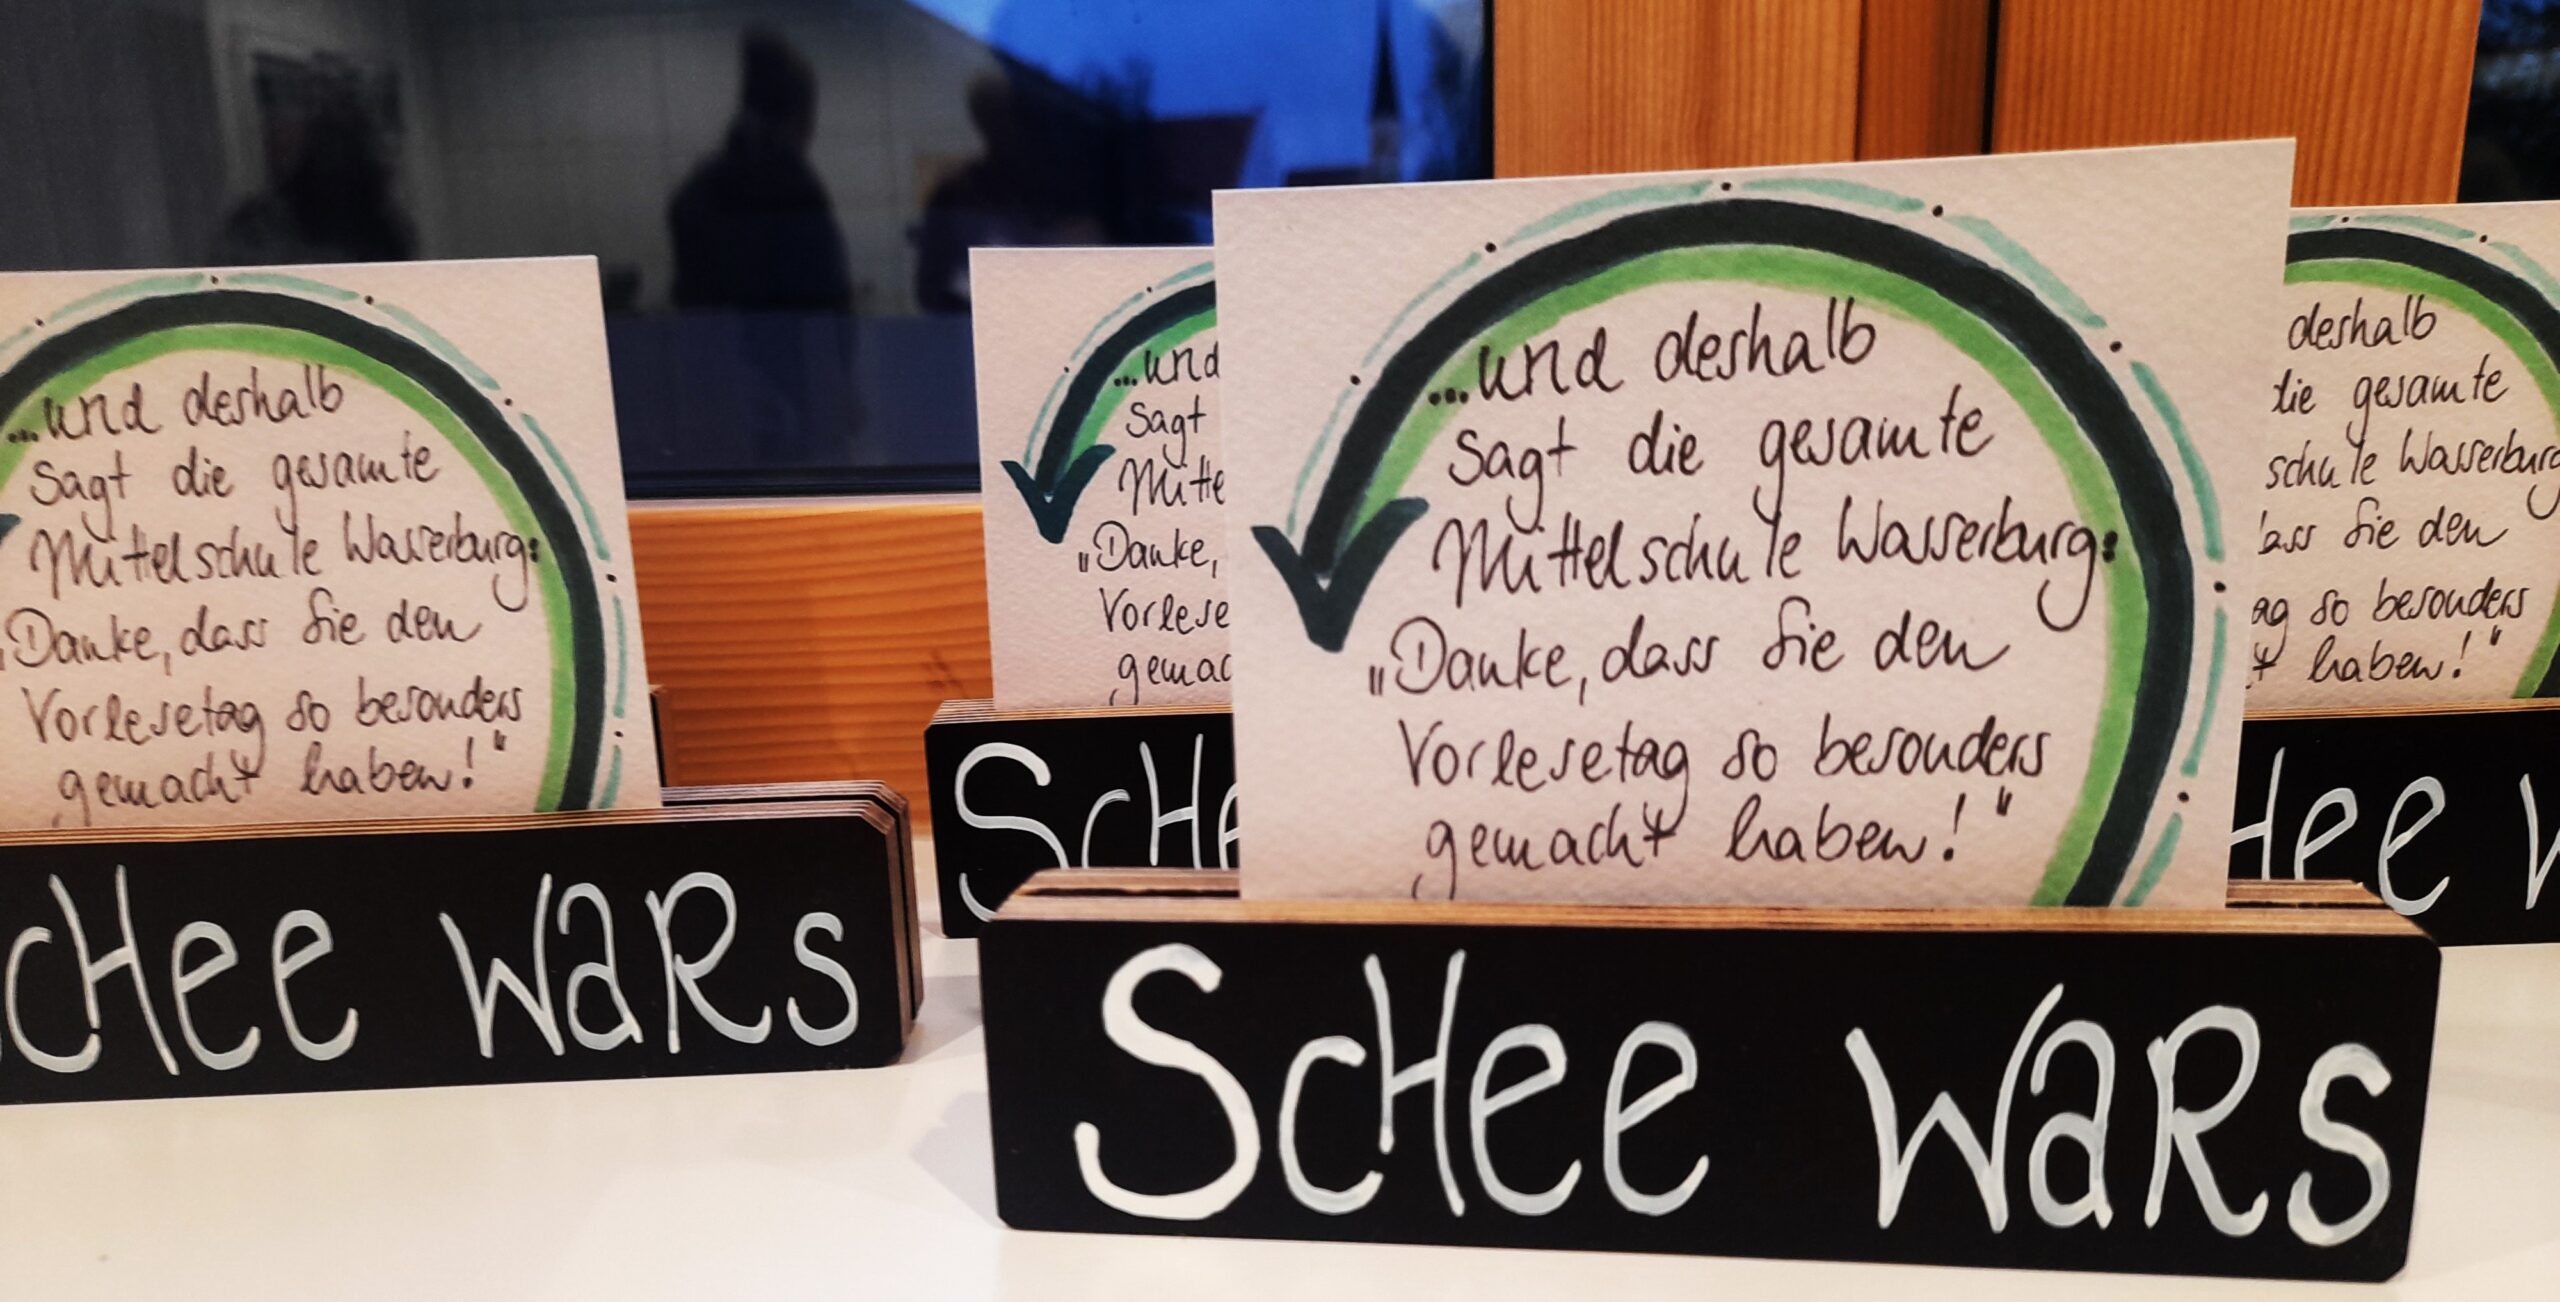 ...und deshalb
sagt die gesamte
Mittelschule Wasserburg:
„Danke, dass Sie den
Vorlesetag so besonders
gemacht haben!"
SCHEE WARS
...und
sagt
Mitte
„Danke,
Vorlese
gemac
SCHE
...und deshalb
sagt die gesamte
Mittelschule Wasserburg:
„Danke, dass Sie den
Vorlesetag so besonders
gemacht haben!"
SCHEE WARS
deshalb
die gesamte
schule Wasserburg
ass Sie den
ag so besonders
t haben!"
HEE W